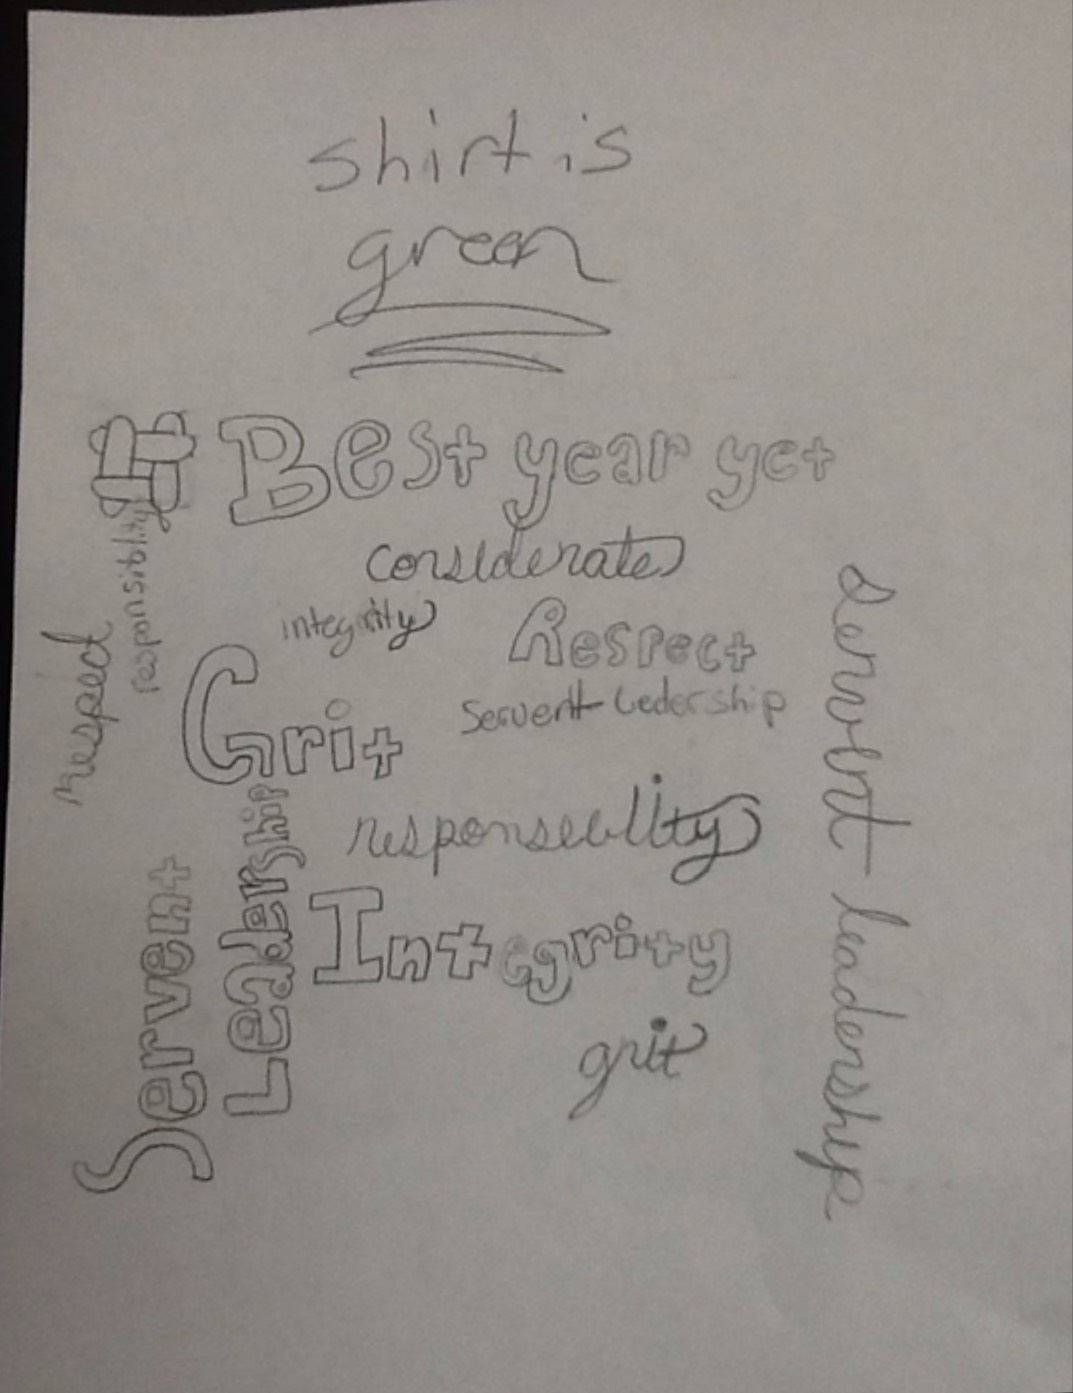 shirt is
green
# Best year yet
considerate
integrity
Respect
responsibility
respect
Grit
Servent Ledership
responseblity
Servent
Leadership
Integrity
grit
servent leadership